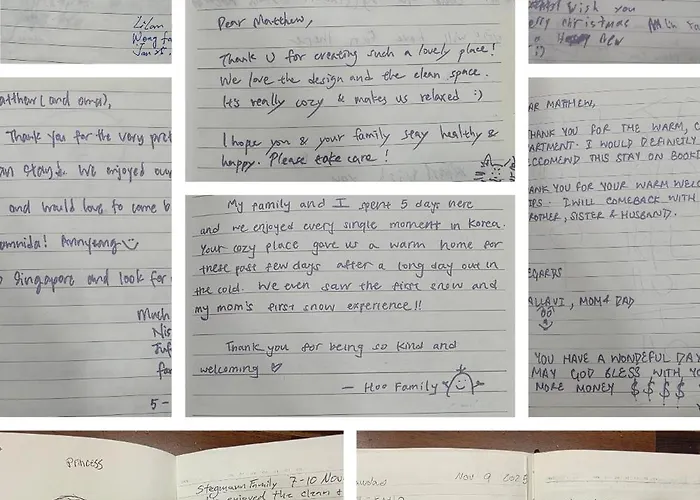 Lilan
Wong fa
Jan 25
Dear Matthew,
Thank U for creating such a lovely place!
We love the design and the clean space.
It's really cozy & makes us relaxed :)
I hope you & your family stay healthy &
happy. Please take care!
Wish you
christmas
:)
atthew (and oma),
Thank you for the very pret
an stay. We enjoyed ou
and would love to come b
omnida! Annyeong
Singapore and look for
Mach
Nis
Juf
fa
5-
My family and I spent 5 days here
and we enjoyed every single moment in Korea.
Your cozy place gave us a warm home for
these past few days after a long day out in
the cold. We even saw the first snow and
my mom's first snow experience!!
Thank you for being so kind and
welcoming ♡
— Hoo Family
AR MATHEW,
HANK YOU FOR THE WARM, C
ARTMENT. I WOULD DEFINITLY
CCOMEND THIS STAY ON BOOKI
ANK YOU FOR YOUR WARM WELC
IPS. I WILL COMEBACK WITH
ROTHER, SISTER & HUSBAND.
EGARDS
ALLAVI, MOM & DAD
YOU HAVE A WONDEFUL DAY
MAY GOD BLESS WITH YO
MORE MONEY $ $ $ $
Princess
Stegmann Family 7-10 Nov
enjoyed the clean &
Nov 9 2025